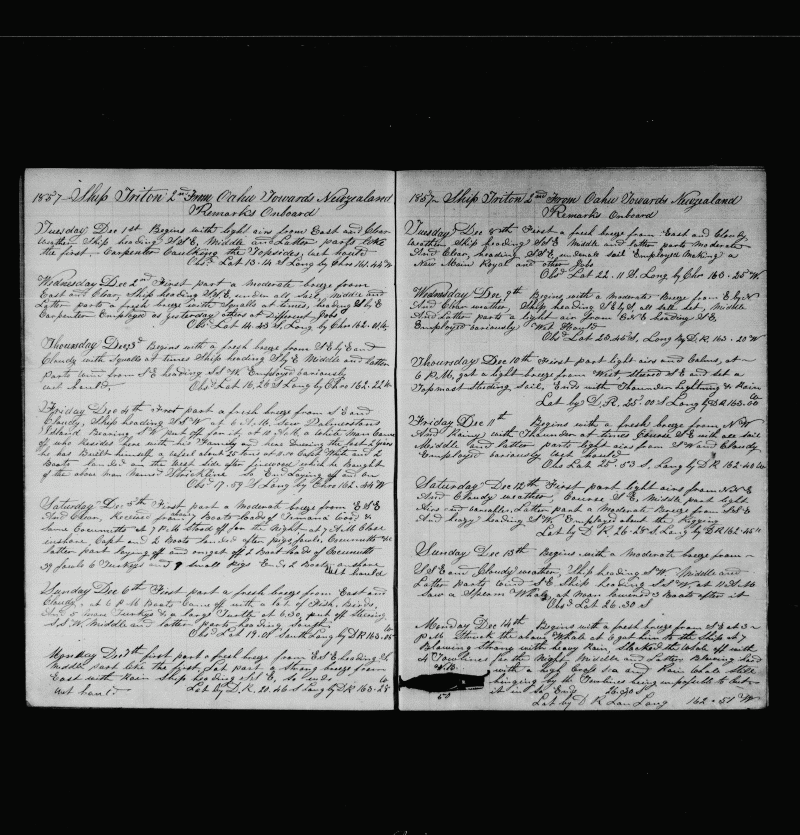 1857 Ship Triton 2nd From Oahu Towards Newzealand
Remarks Onboard
Tuesday Dec 1st Begins with light airs from East and Clear
weather Ship heading S S E, Middle and Latter parts like
the first Carpenter Caulking the Topsides, wet hauld
Obs Lat 13.14 S Long by Chro 161.44 W
Wednesday Dec 2nd First part a moderate breeze from
East and Clear, Ship heading S S E under all Sail, Middle and
Latter parts a fresh breeze with Squalls at times, heading S by E
Carpenter Employed as yesterday others at different Jobs
Obs Lat 14.43 S, Long by Chro 161
Thoursday Dec 3d Begins with a fresh breeze from E by E and
Cloudy with Squalls at times Ship heading S by E Middle and Latter
Parts wind from S E heading S S W Employed variously
wet hauld Obs Lat 16.26 S Long by Chro 162.22 W
Friday Dec 4th First part a fresh breeze from S E and
Cloudy, Ship heading S S W at 6 A.M. saw Palmerstons
Island Bearing off at A.M. a White Man Came
off who resides here with his Family and has During the past 4 years
he has Built himself a vessel about 25 tons at 8.10 Capt White and 2
Boats landed on the West Side after firewood which he bought
of the above man Named So Ends laying off and on
Obs 17.59 S Long by Chro 162.54 W
Saturday Dec 5th First part a Moderate breeze from E S E
And Clear, Received from 7 Boats loads of Tamana Wood &
some Cocunutts at 7 P.M. Stood off for the Night at 7 A.M. Close
inshore Capt and 2 Boats landed after pigs, fouls, Cocunutts &c
latter part laying off and on, got off 2 Boat loads of Cocunutts
39 fouls 6 Turkeys and 9 small pigs Ends 2 Boats on shore
wet hauld
Sunday Dec 6th First part a fresh breeze from East and
Cloudy, at 6 P M Boats Came off with a lot of Fish, Birds,
And 5 more Turkeys & a large Turtle at 6.30, put off Steering
S S W, Middle and latter parts heading South
Obs Lat 19.01 South Long by D R 163.15
Monday Dec 7th first part a fresh breeze from E S E heading S
Middle part like the first, Lat part a Strong breeze from
East with Rain Ship heading S S E So ends
wet hauld Lat by D. R. 20.46 S Long by D R 163.28
1857 Ship Triton 2nd From Oahu Towards Newzealand
Remarks Onboard
Tuesday Dec 8th First a fresh breeze from East and Cloudy
weather, Ship heading S S E Middle and latter parts Moderate
And Clear, heading S S E under all sail Employed Making a
New Main Royal and other Jobs
Obs Lat 22.11 S, Long by Chr 163.25 W
Wednesday Dec 9th Begins with a Moderate Breeze from E by N
And Clear weather, Ship heading S E by S, all sail set, Middle
And Latter parts a light air from E N E heading S E
Employed variously Wet Hauld
Obs Lat 23.45 S, Long By D R. 163.20 W
Thoursday Dec 10th First part light airs and Calms, at
6 P.M, got a light breeze from West Steerd S E and Set a
Topmast Studing Sail, Ends with Thounder Lightning & Rain
Lat by D. R. 25.00 S Long by D R 163.00
Friday Dec 11th Begins with a fresh breeze from N W
And Rainy with Thounder at times Course S E with all sail
Middle and Latter parts light airs from S W and Cloudy
Employed variously Wet hauld
Obs Lat 25.53 S, Long by D R 162.40 W
Saturday Dec 12th First part light airs from N N E
And Cloudy weather, Course S E, Middle part light
Airs and variable, Latter part a Moderate Breeze from S S E
And hazy heading S W, Employed about the Rigging
Lat by D R 26.28 S, Long by D R 162.45
Sunday Dec 13th Begins with a moderate breeze from
S S E and Cloudy weather, Ship heading S W, Middle and
Latter parts wind S E Ship heading S S W, at 11 A M
Saw a Spearm Whale, at Noon lowered 3 Boats after it
Obs Lat 26.30 S
Monday Dec 14th Begins with a fresh breeze from S E at 3
P M Struck the above Whale at 6 got him to the Ship at 7
Blowing Strong with heavy Rain, Slacked the Whale off with
4 Towlines for the Night, Middle and Latter Blowing hard
with a ugly Cross sea and Rain Whale still
hinging by the Towlines being impossible to Cut
it in So Ends 26.30 S
Lat by D R Lon Long 162.51 W
50